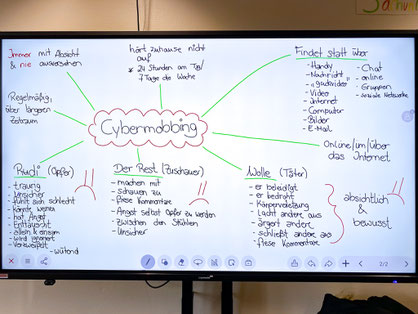 Immer mit Absicht
& nie ausversehen
hört zuhause nicht
auf
* 24 Stunden am Tag/
7 Tage die Woche
Findet statt über
- Handy
- Nachricht
- Video
- Internet
- Computer
- Bilder
- E-Mail
- Chat
- online
- Gruppen
- soziale Netzwerke
Regelmäßig,
über längeren
Zeitraum
Cybermobbing
Online/im/über
das Internet
Rudi (Opfer)
- traurig
- unsicher
- fühlt sich schlecht
- könnte weinen
- hat Angst
- Enttäuscht
- allein & einsam
- wird ignoriert
- verzweifelt
- wütend
Der Rest (Zuschauer)
- machen mit
- schauen zu
- fiese Kommentare
- Angst selbst Opfer zu werden
- zwischen den Stühlen
- Unsicher
Wolle (Täter)
- er beleidigt
- er bedroht
- Körperverletzung
- Lacht andere aus
- ärgert andere
- schließt andere aus
- fiese Kommentare
absichtlich
&
bewusst
2/2